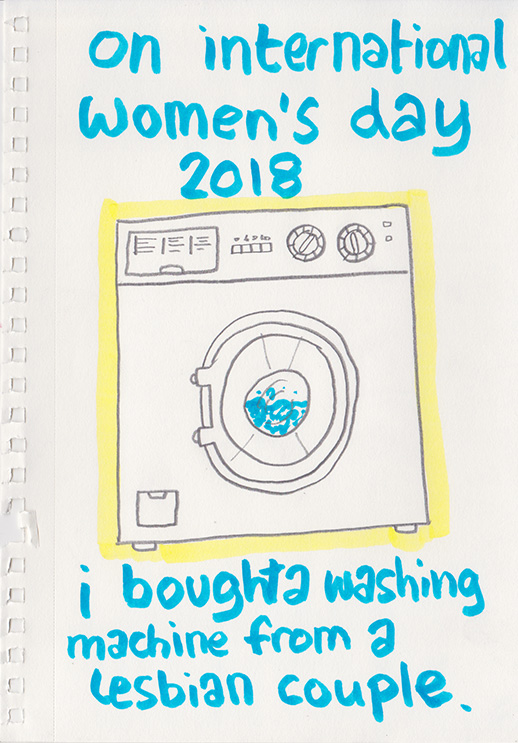 on international
women's day
2018
i bought a washing
machine from a
lesbian couple.